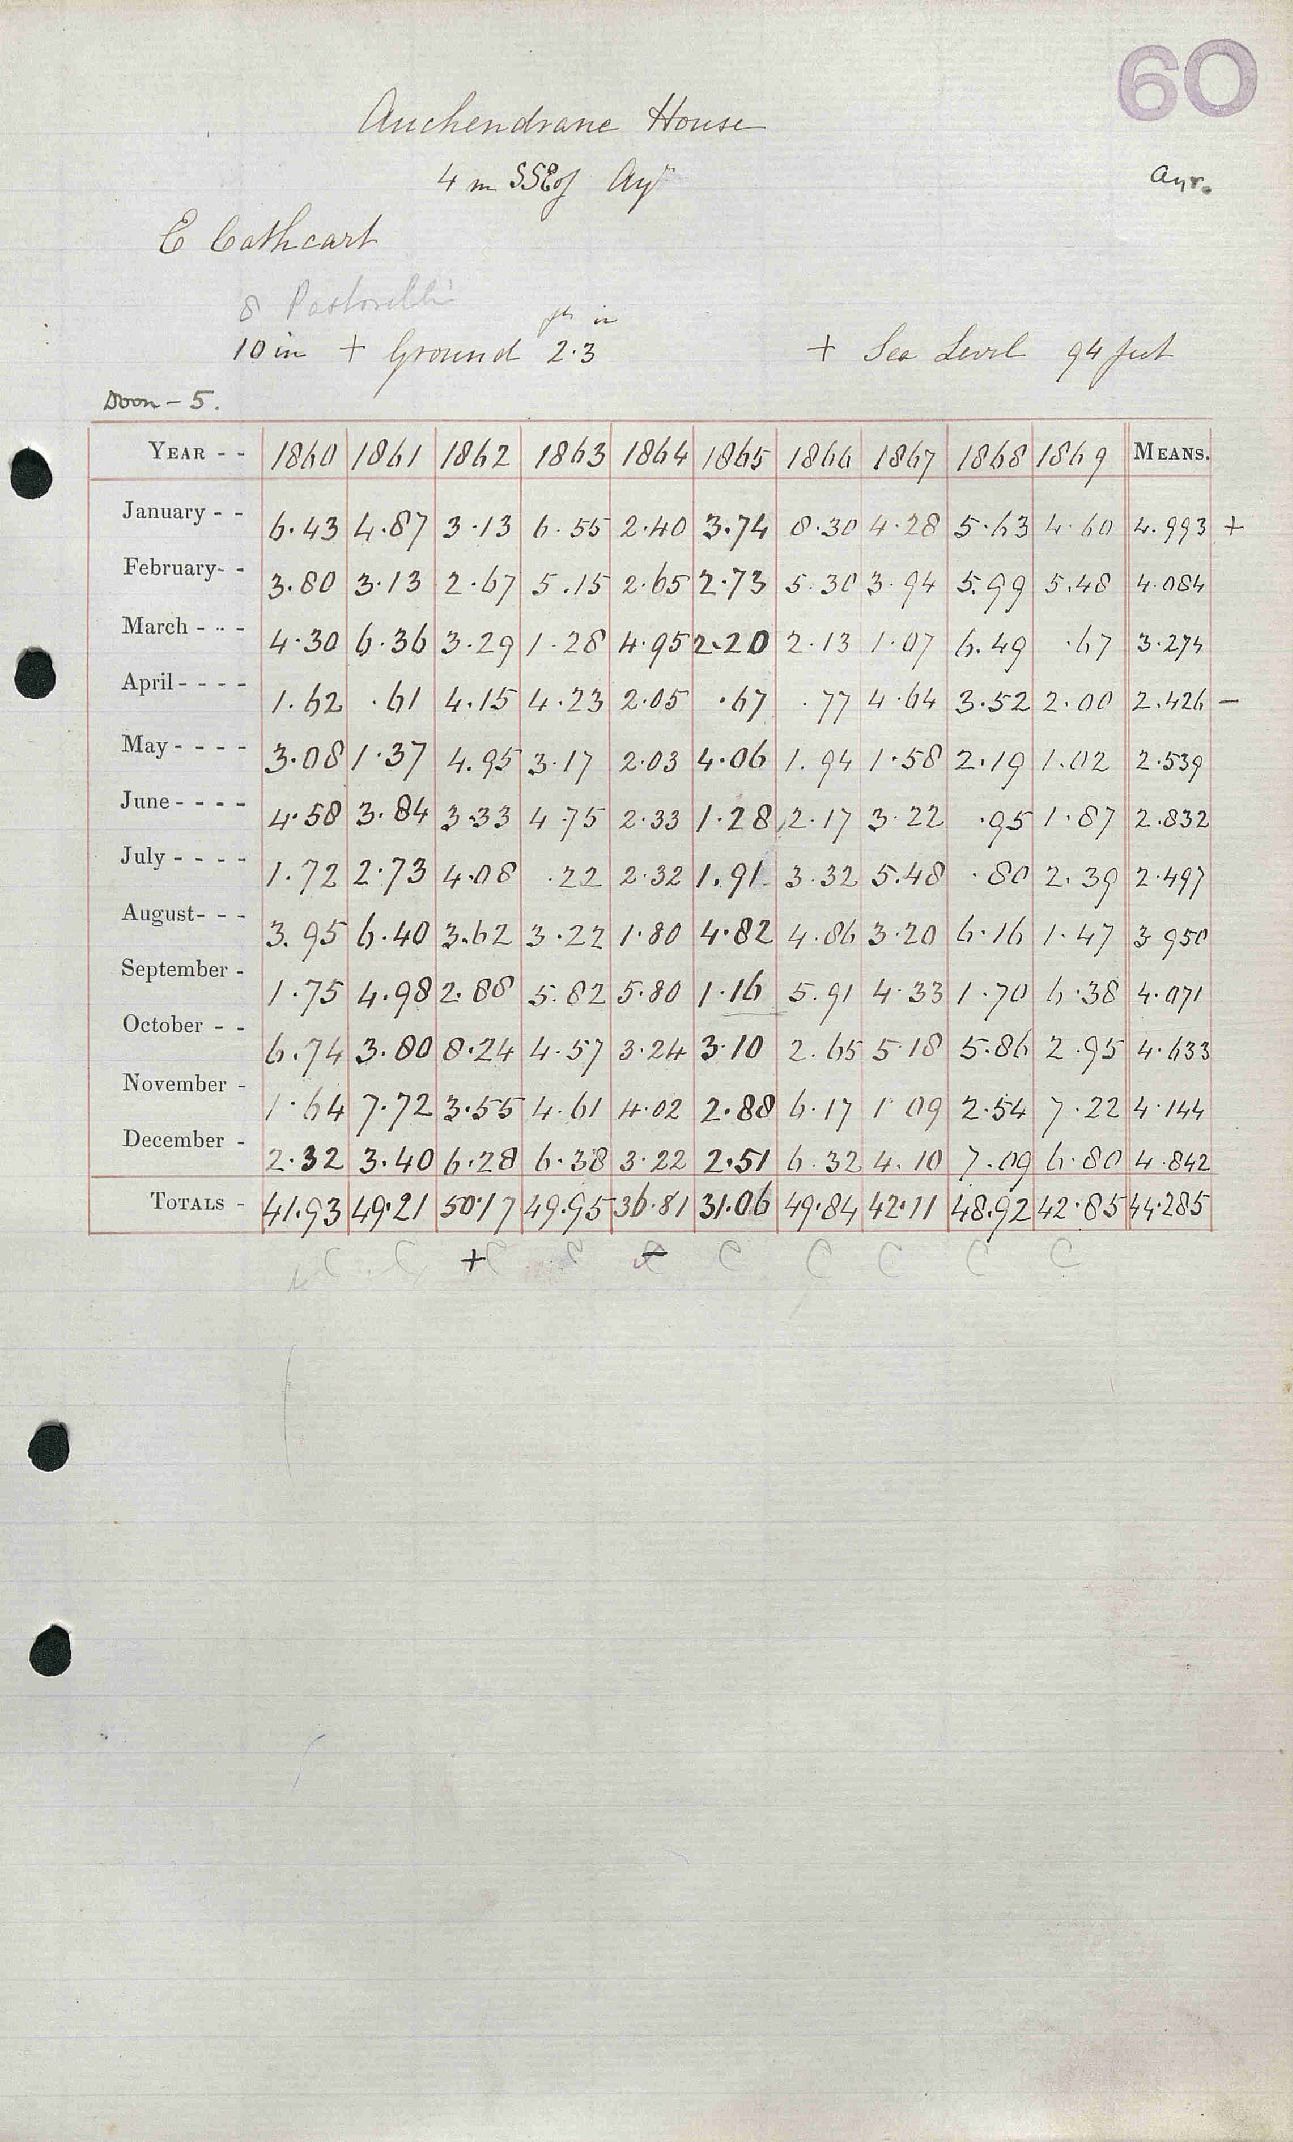 60
Auchendrane House
4 m SSE of Ayr
Ayr.
E Cathcart
8 Pastorelli
ft in
10 in + Ground 2.3 + Sea Level 94 feet
Doon - 5.
YEAR - - 1860 1861 1862 1863 1864 1865 1866 1867 1868 1869 MEANS.
January - - 6.43 4.87 3.13 6.55 2.40 3.74 8.30 4.28 5.63 4.60 4.993 +
February- - 3.80 3.13 2.67 5.15 2.65 2.73 5.30 3.94 5.99 5.48 4.084
March - - - 4.30 6.36 3.29 1.28 4.95 2.20 2.13 1.07 6.49 .67 3.274
April - - - - 1.62 .61 4.15 4.23 2.05 .67 .77 4.64 3.52 2.00 2.426 -
May - - - - 3.08 1.37 4.95 3.17 2.03 4.06 1.94 1.58 2.19 1.02 2.539
June - - - - 4.58 3.84 3.33 4.75 2.33 1.28 2.17 3.22 .95 1.87 2.832
July - - - - 1.72 2.73 4.08 .22 2.32 1.91 3.32 5.48 .80 2.39 2.497
August- - - 3.95 6.40 3.62 3.22 1.80 4.82 4.86 3.20 6.16 1.47 3.950
September - 1.75 4.98 2.88 5.82 5.80 1.16 5.91 4.33 1.70 6.38 4.071
October - - 6.74 3.80 8.24 4.57 3.24 3.10 2.65 5.18 5.86 2.95 4.633
November - 1.64 7.72 3.55 4.61 4.02 2.88 6.17 1.09 2.54 7.22 4.144
December - 2.32 3.40 6.28 6.38 3.22 2.51 6.32 4.10 7.09 6.80 4.842
TOTALS - 41.93 49.21 50.17 49.95 36.81 31.06 49.84 42.11 48.92 42.85 44.285
C C + C C - C C C C C C